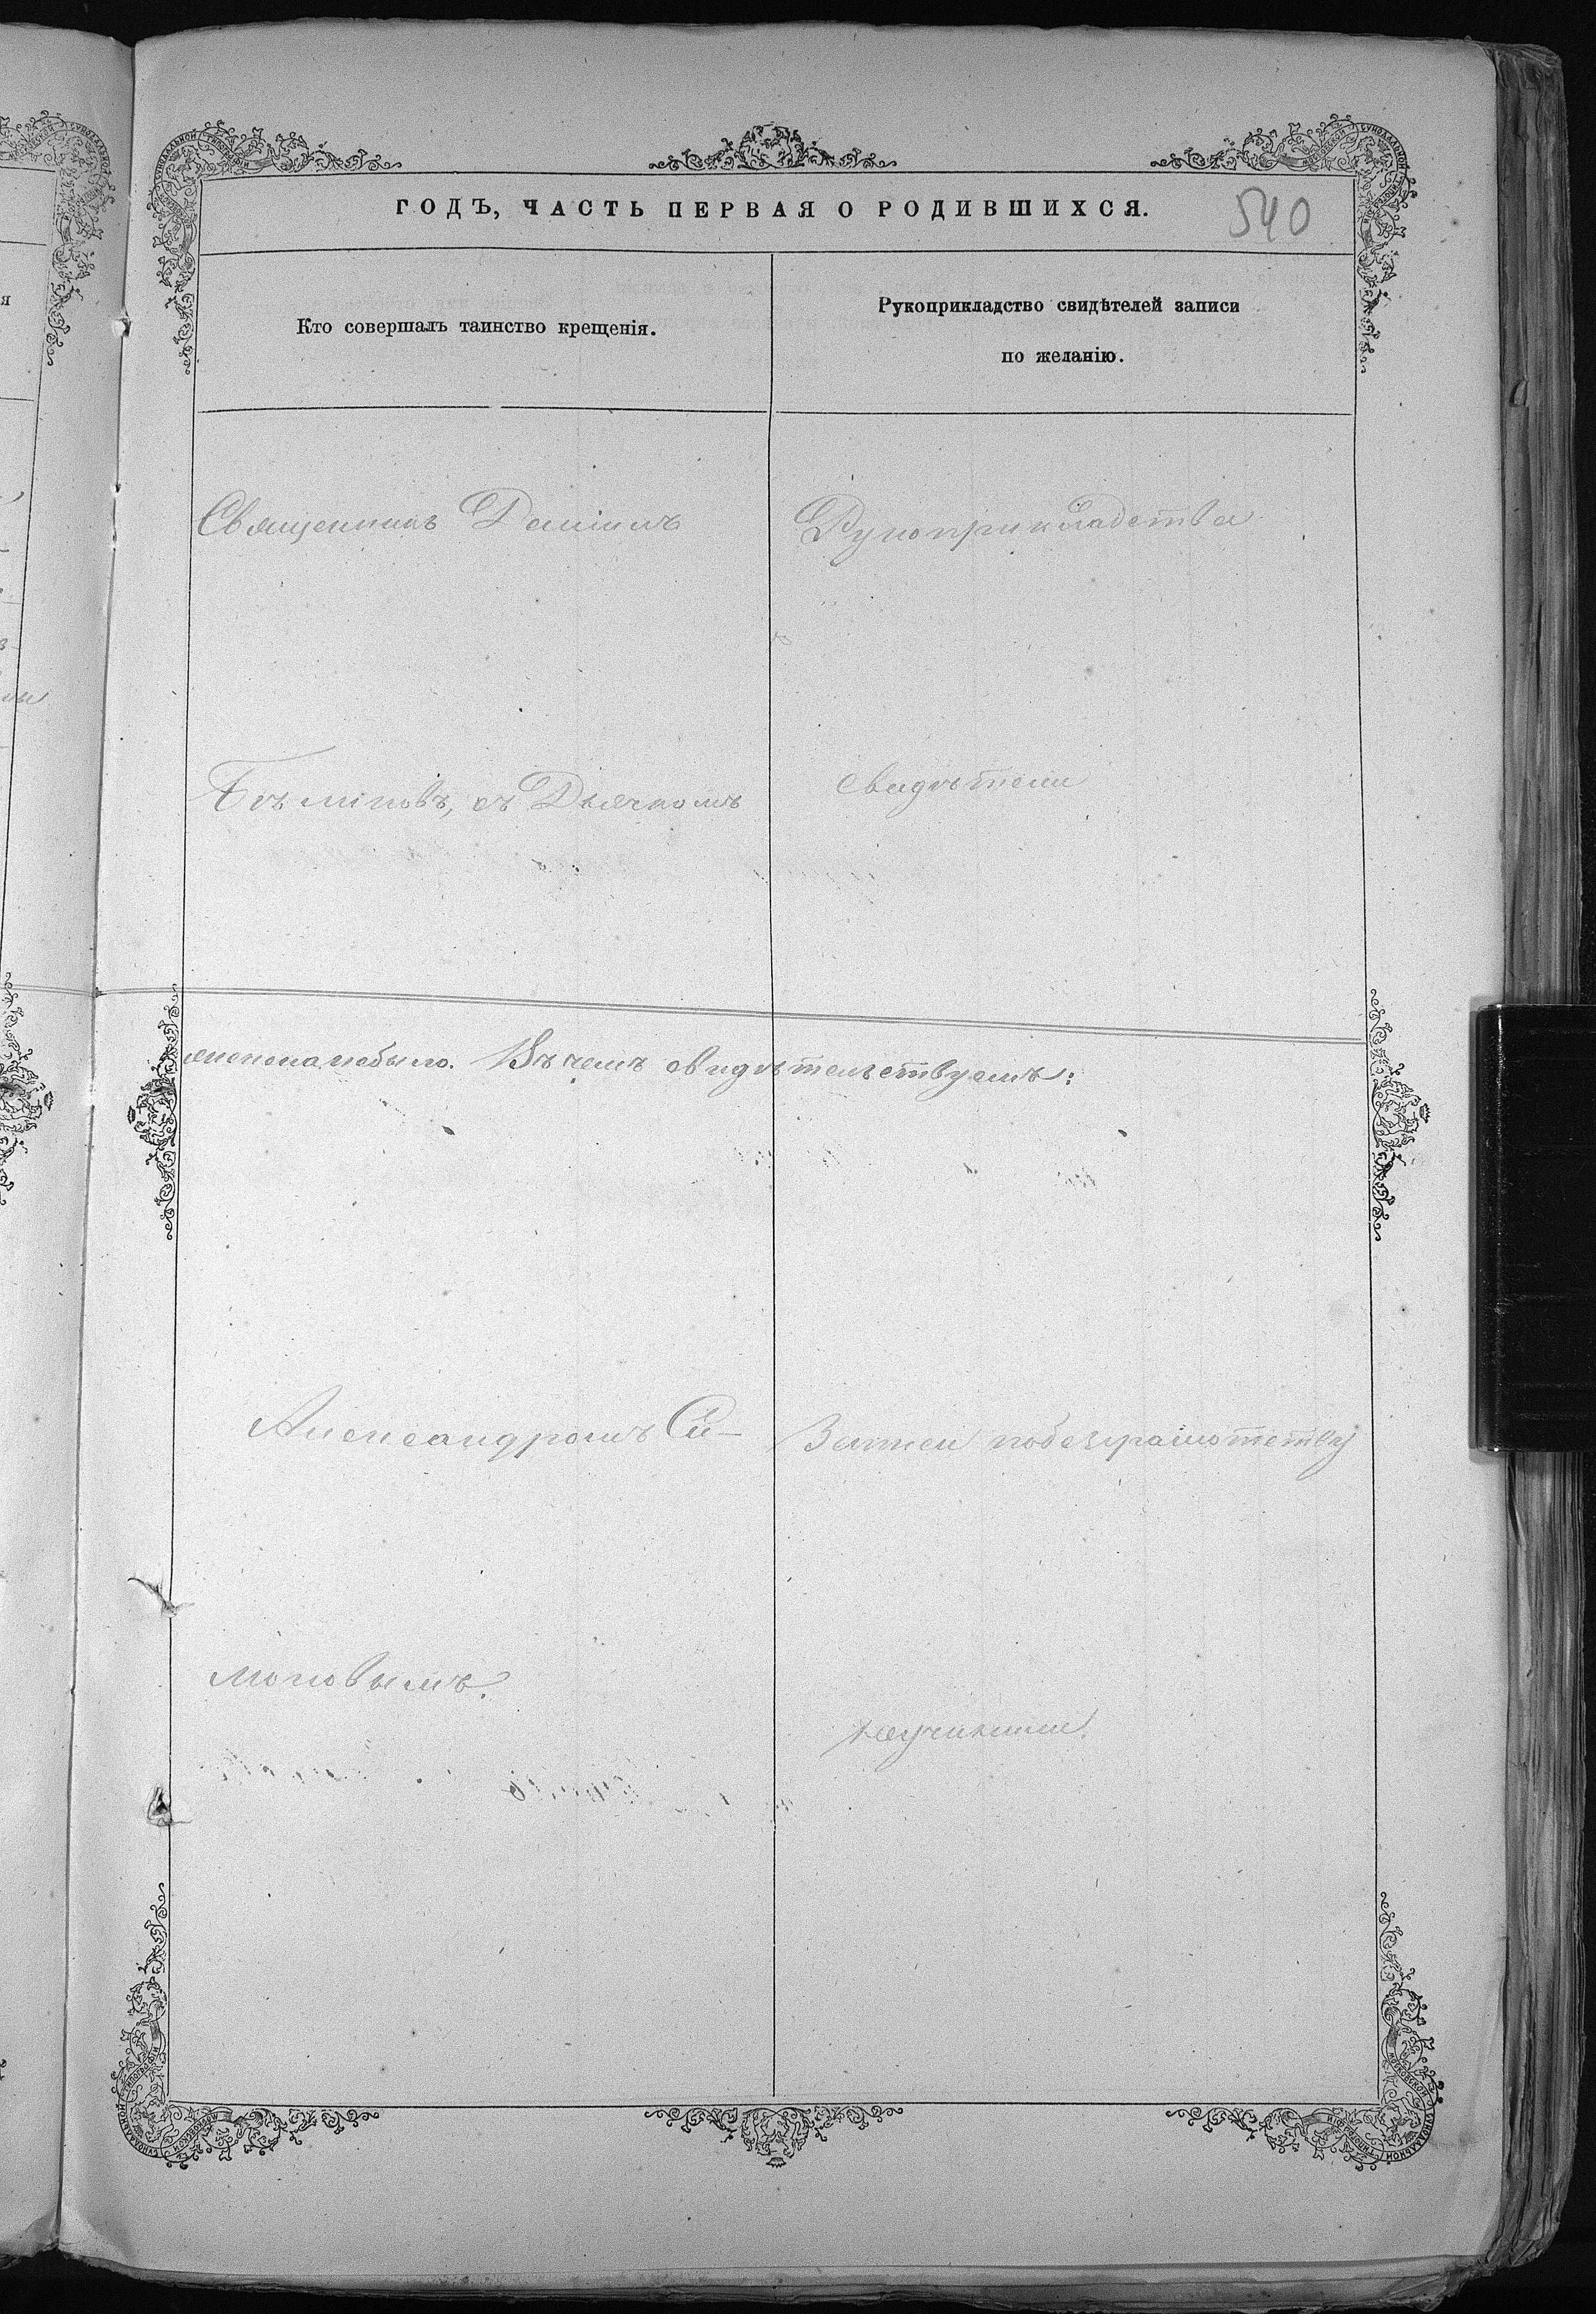 ГОДЪ, ЧАСТЬ ПЕРВАЯ О РОДИВШИХСЯ.
540
Кто совершалъ таинство крещенія.
Рукоприкладство свидѣтелей записи
по желанію.
Священникъ Даніилъ
Рукоприкладства
съ Дьячкомъ
свидѣтели
небыло. Въ чемъ свидѣтельствуемъ:
Александромъ Си-
записи побезграмотству
моновымъ.
неучинили.